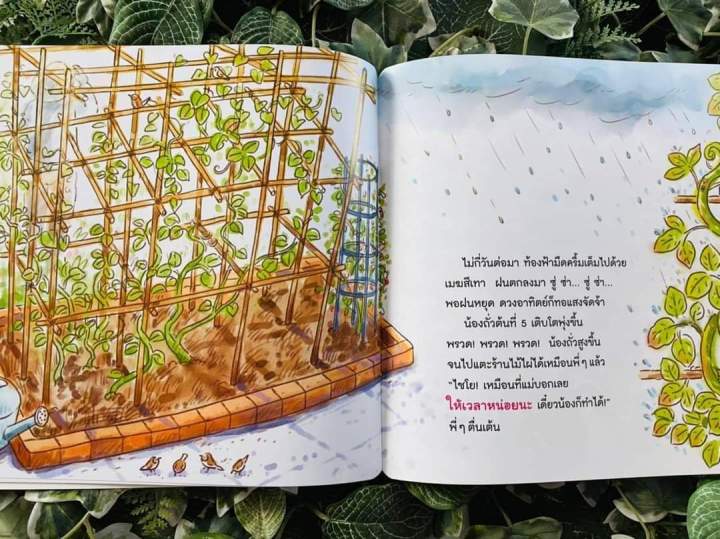 ไม่กี่วันต่อมา ท้องฟ้ามืดครึ้มเต็มไปด้วย
เมฆสีเทา ฝนตกลงมา ซู่ ซ่า... ซู่ ซ่า...
พอฝนหยุด ดวงอาทิตย์ก็ทอแสงจัดจ้า
น้องถั่วต้นที่ 5 เติบโตพุ่งขึ้น
พรวด! พรวด! พรวด! น้องถั่วสูงขึ้น
จนไปแตะร้านไม้ไผ่ได้เหมือนพี่ๆ แล้ว
"ไชโย! เหมือนที่แม่บอกเลย
ให้เวลาหน่อยนะ เดี๋ยวน้องก็ทำได้!"
พี่ๆ ตื่นเต้น